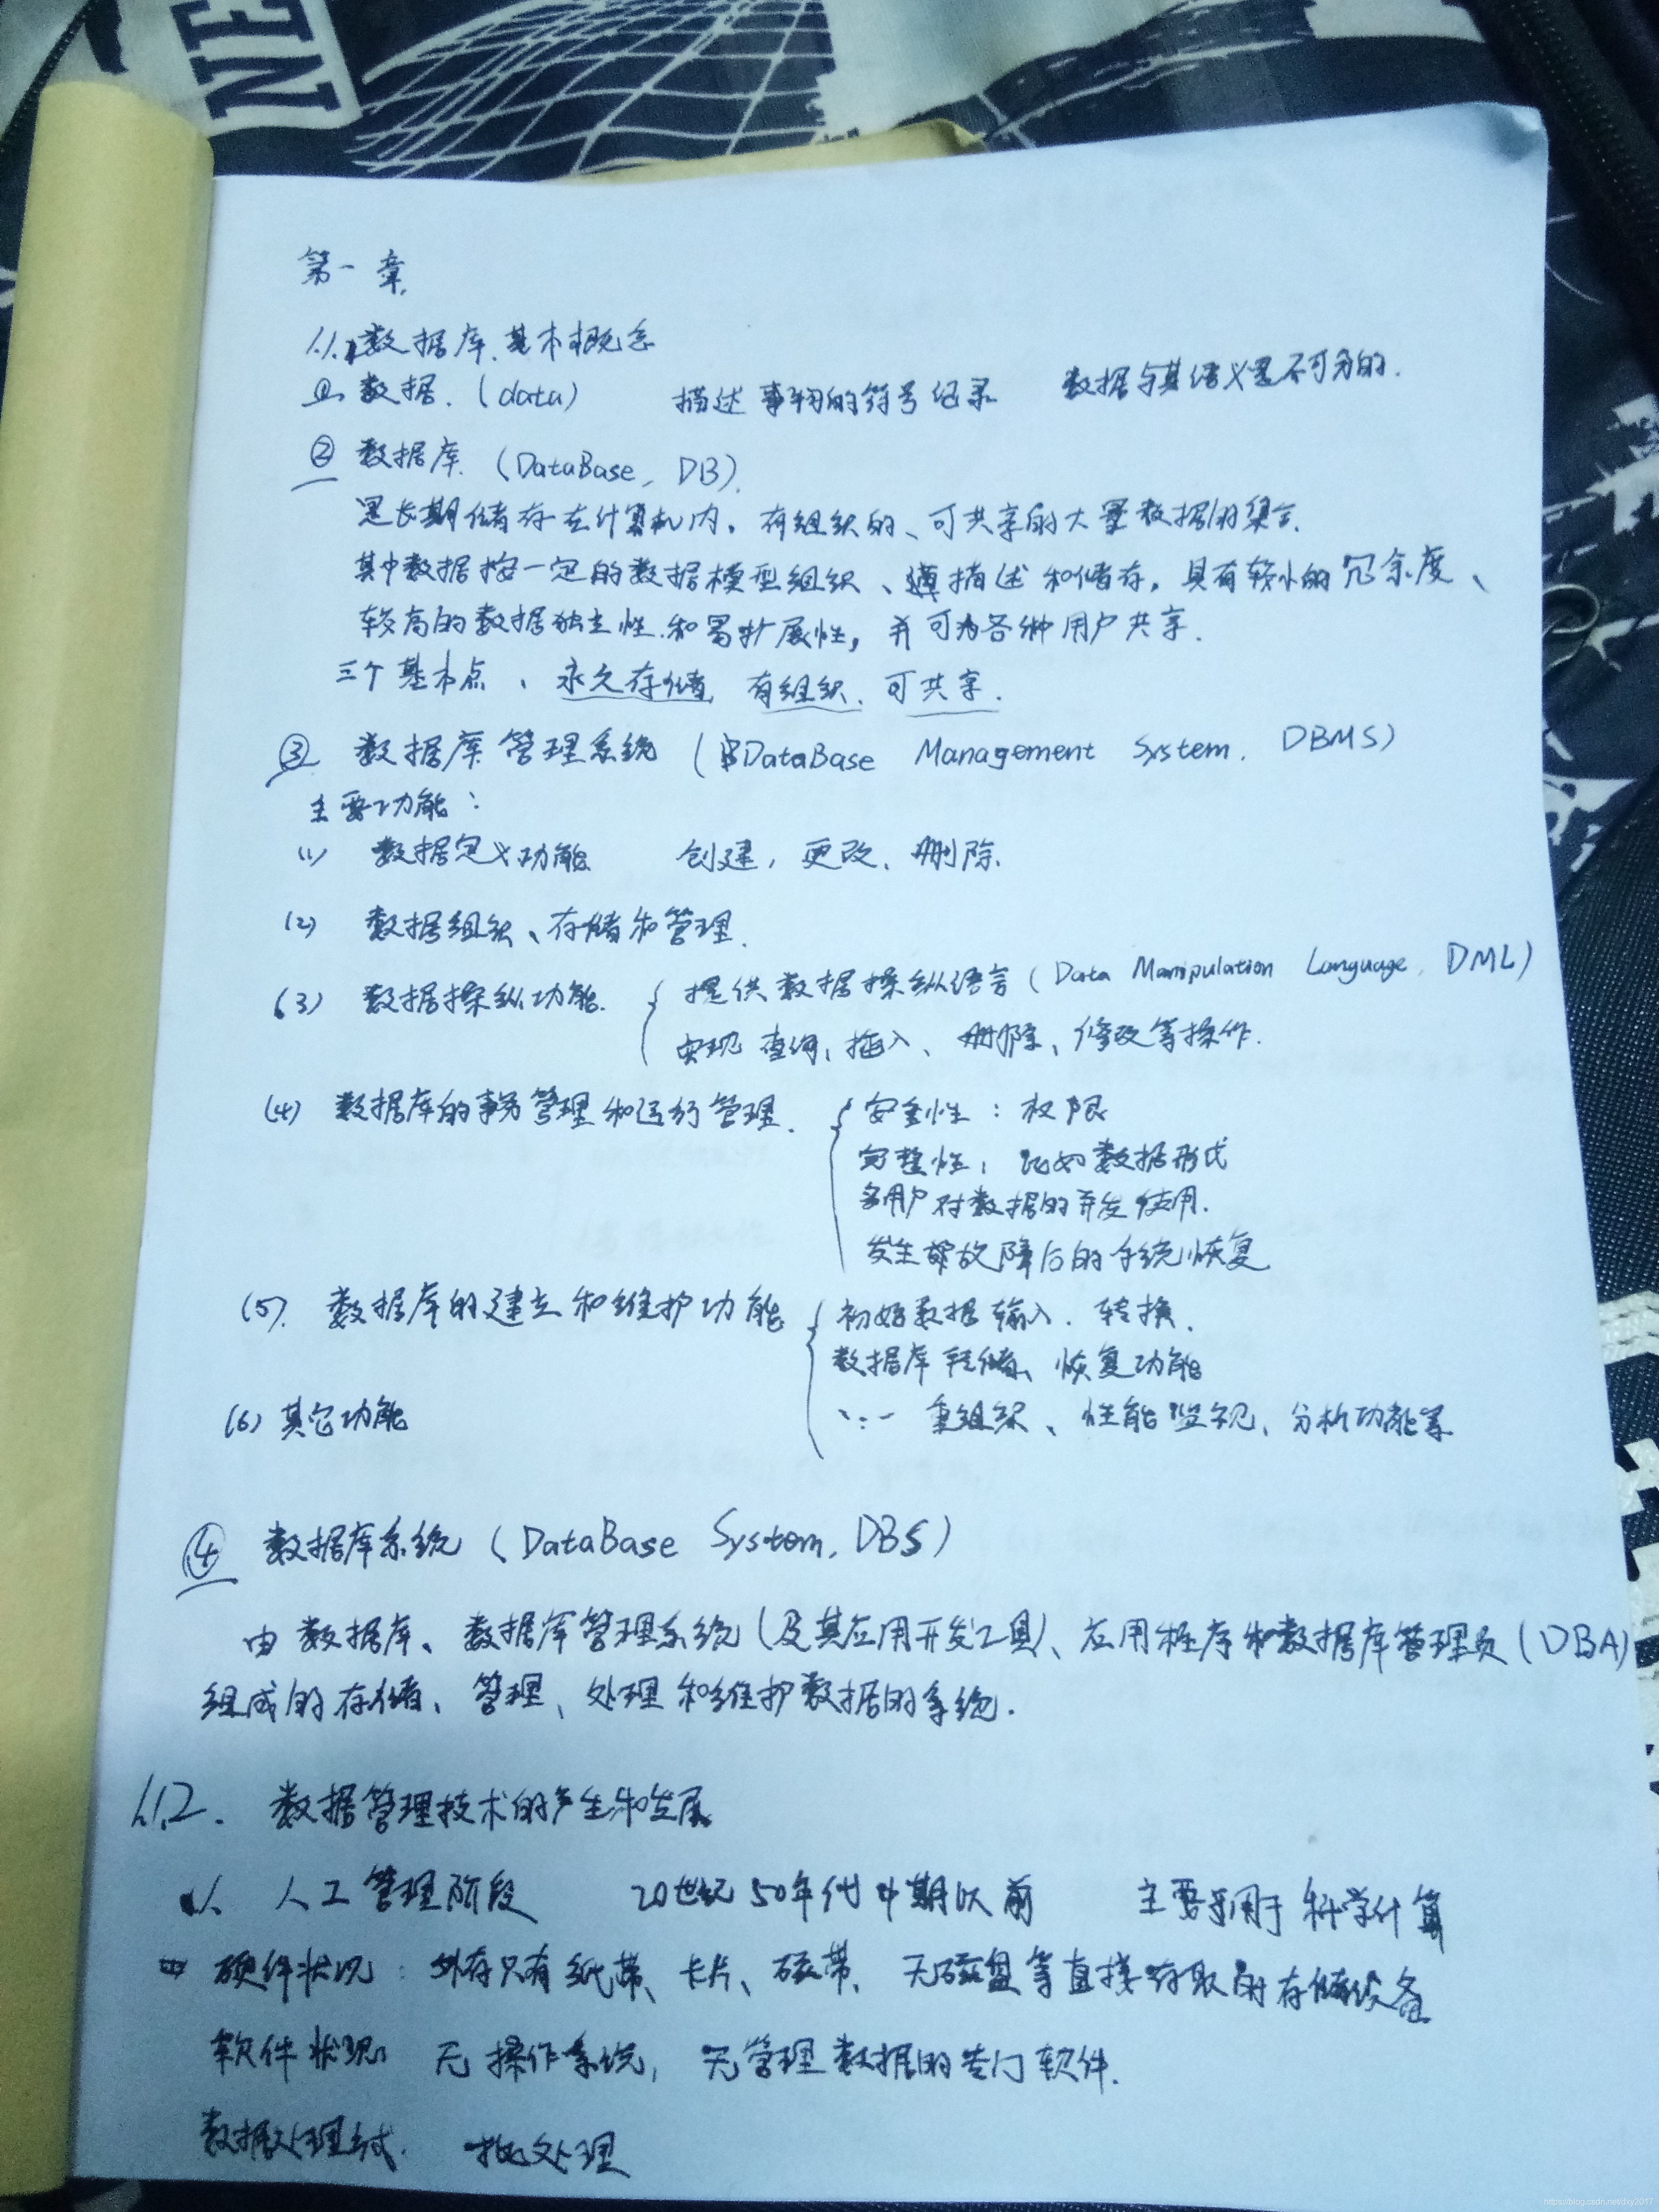 EN
第一章.
1.1.1数据库.基本概念
①.数据.(data) 描述事物的符号记录 数据与其语义是不可分的.
② 数据库.(DataBase, DB).
是长期储存在计算机内,有组织的、可共享的大量数据的集合.
其中数据按一定的数据模型组织、描述和储存,具有较小的冗余度、
较高的数据独立性.和易扩展性,并可为各种用户共享.
三个基本点、永久存储,有组织.可共享.
③ 数据库管理系统(DataBase Management System, DBMS)
主要功能:
(1) 数据定义功能 创建,更改、删除.
(2) 数据组织、存储和管理.
(3) 数据操纵功能. { 提供数据操纵语言(Data Manipulation Language, DML)
实现查询,插入、删除、修改等操作.
(4) 数据库的事务管理和运行管理. { 安全性:权限
完整性:比如数据形式
多用户对数据的并发使用.
发生故障后的系统恢复
(5). 数据库的建立和维护功能 { 初始数据输入.转换.
数据库转储、恢复功能
重组织、性能监视、分析功能等
(6) 其它功能
④ 数据库系统(DataBase System, DBS)
由数据库、数据库管理系统(及其应用开发工具)、应用程序和数据库管理员(DBA)
组成的存储、管理、处理和维护数据的系统.
1.1.2. 数据管理技术的产生和发展
1、人工管理阶段 20世纪50年代中期以前 主要用于科学计算
硬件状况:外存只有纸带、卡片、磁带,无磁盘等直接存取的存储设备
软件状况 无操作系统,无管理数据的专门软件.
数据处理方式. 批处理
https://blog.csdn.net/dxy2017